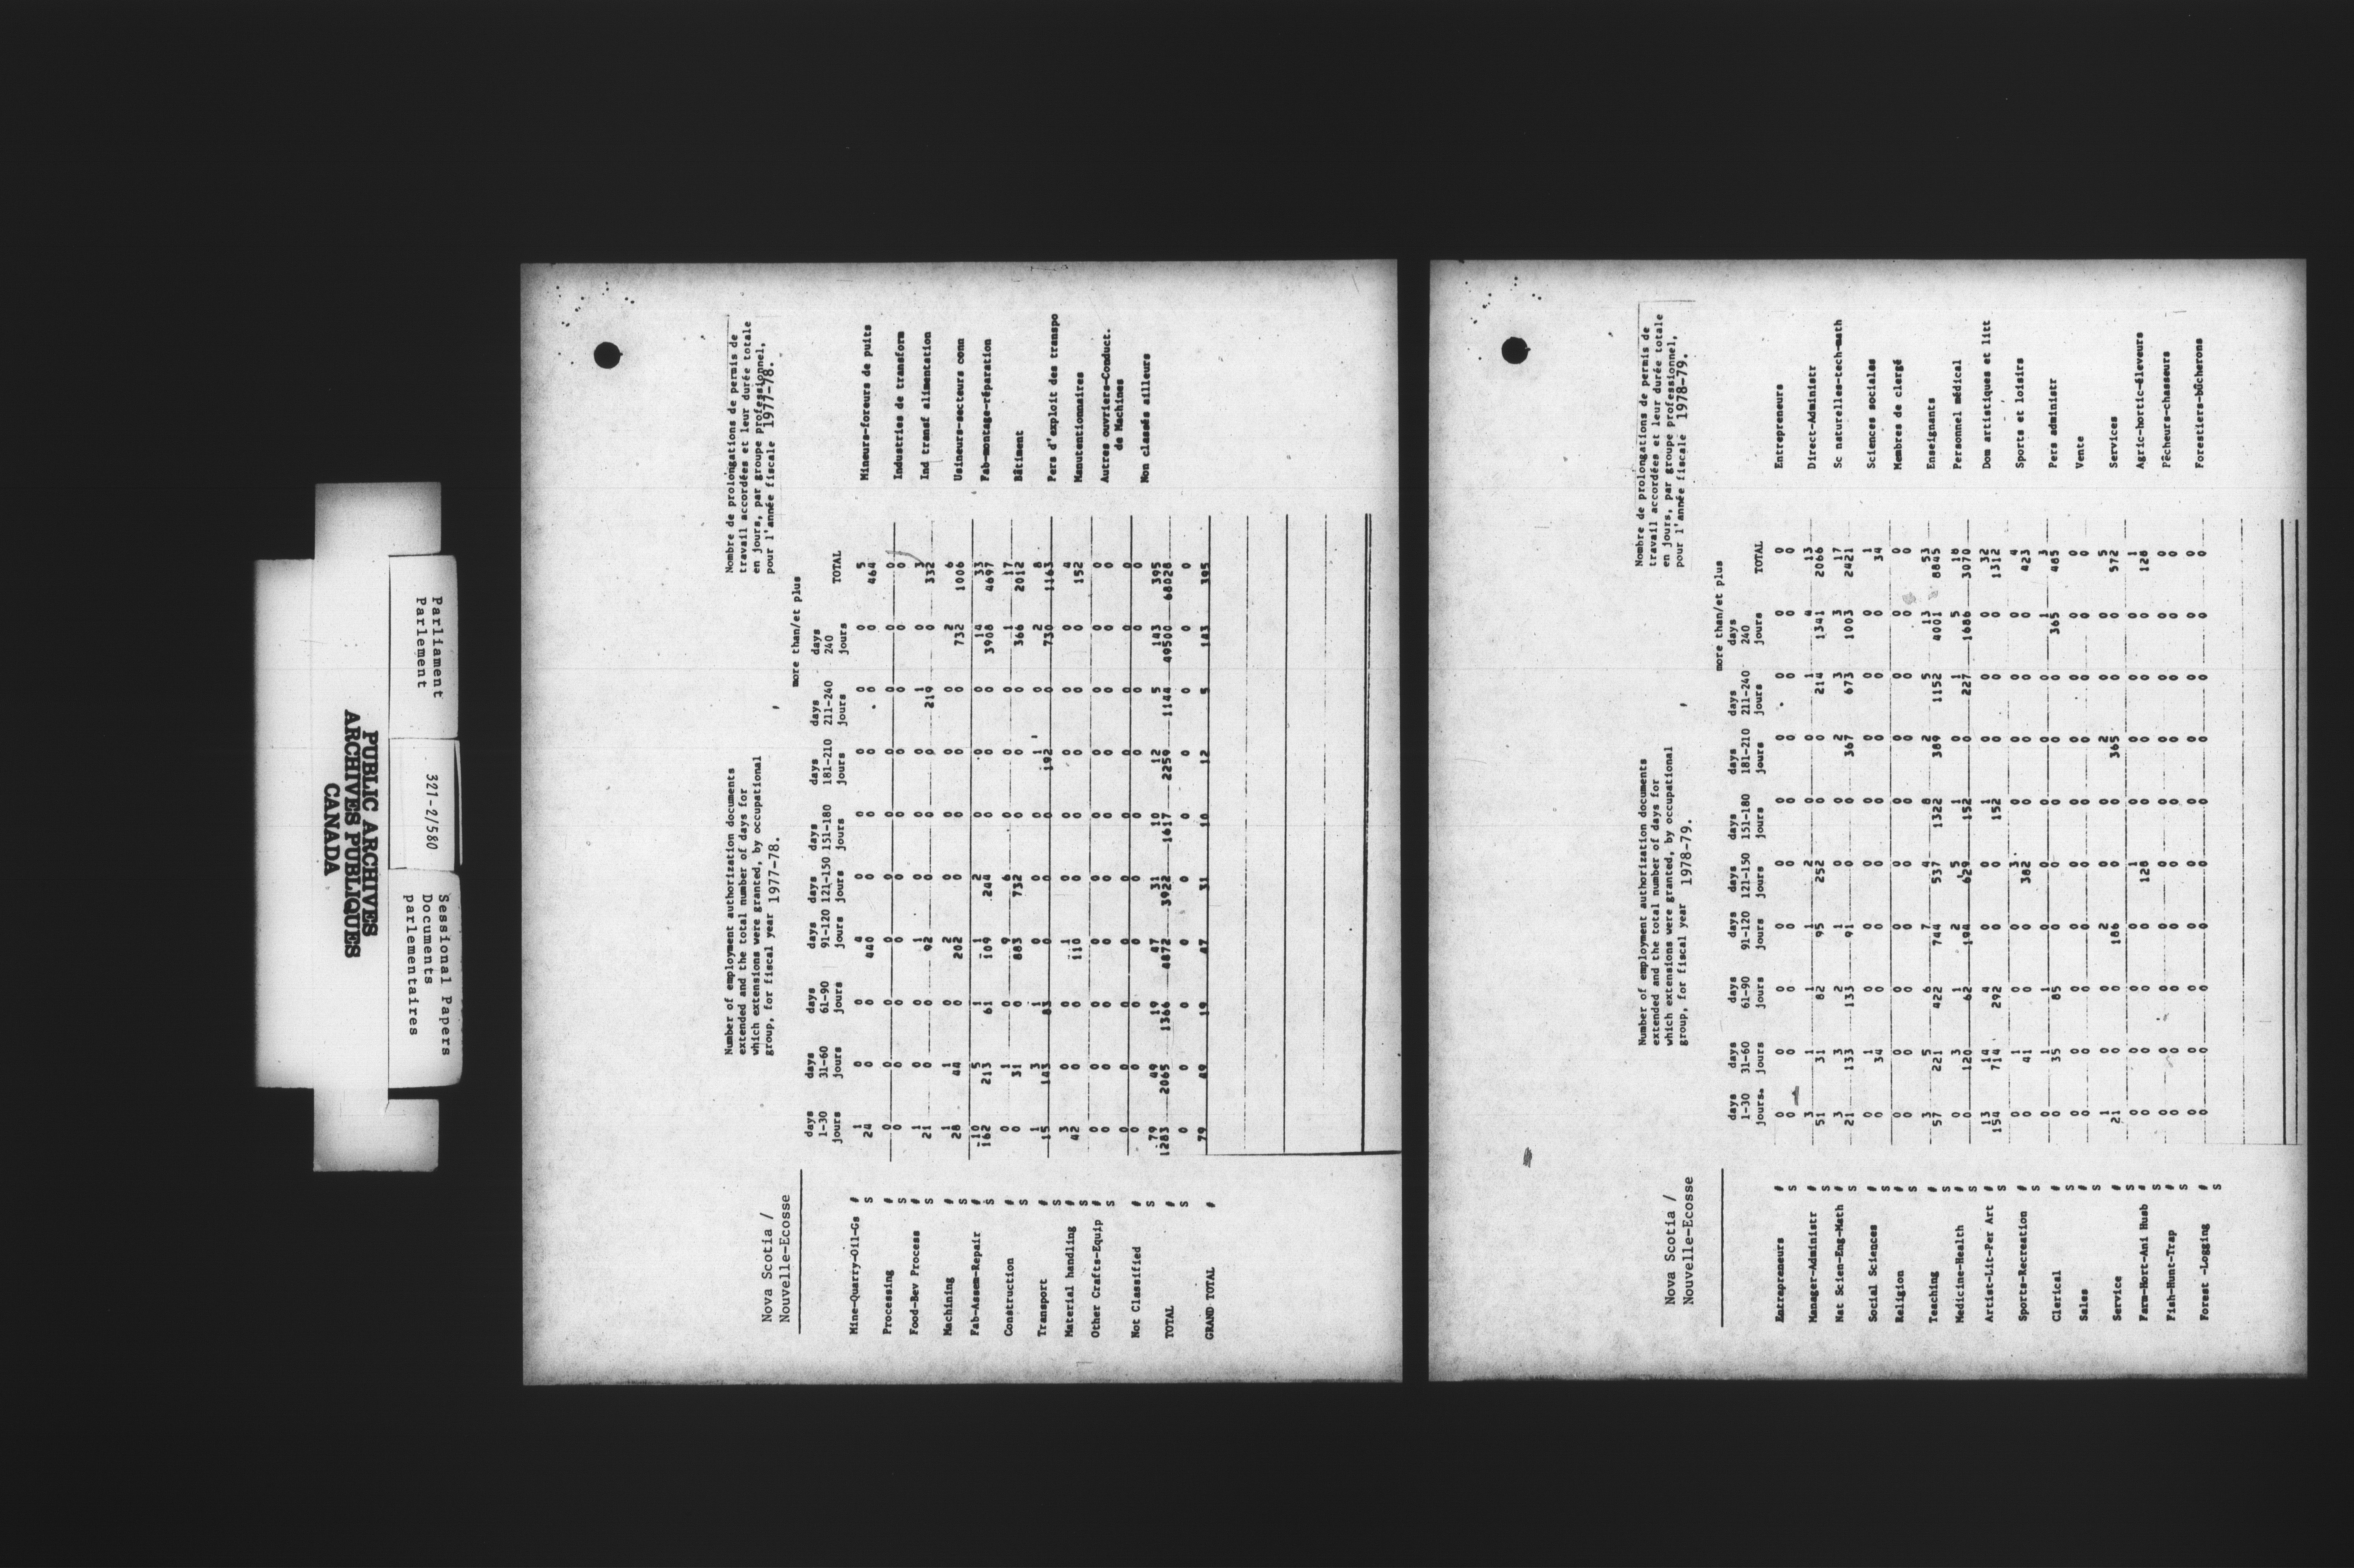 PUBLIC ARCHIVES
ARCHIVES PUBLIQUES
CANADA
Parliament
Parlement
321-2/580
Sessional Papers
Documents
parlementaires
Nova Scotia /
Nouvelle-Ecosse
Number of employment authorization documents
extended and the total number of days for
which extensions were granted, by occupational
group, for fiscal year 1977-78.
Nombre de prolongations de permis de
travail accordées et leur durée totale
en jours, par groupe professionnel,
pour l'année fiscale 1977-78.
more than/et plus
days days days days days days days days days
1-30 31-60 61-90 91-120 121-150 151-180 181-210 211-240 240 TOTAL
jours jours jours jours jours jours jours jours jours
Mine-Quarry-Oil-Gs # 1 0 0 4 0 0 0 0 0 5 Mineurs-foreurs de puits
S 24 0 0 440 0 0 0 0 0 464
Processing # 0 0 0 0 0 0 0 0 0 0 Industries de transform
S 0 0 0 0 0 0 0 0 0 0
Food-Bev Process # 1 0 0 1 0 0 0 1 0 3 Ind transf alimentation
S 21 0 0 92 0 0 0 219 0 332
Machining # 1 1 0 2 0 0 0 0 2 6 Usineurs-secteurs conn
S 28 44 0 202 0 0 0 0 732 1006
Fab-Assem-Repair # 10 5 1 1 2 0 0 0 14 33 Fab-montage-réparation
S 162 213 61 109 244 0 0 0 3908 4697
Construction # 0 1 0 9 6 0 0 0 1 17 Bâtiment
S 0 31 0 883 732 0 0 0 366 2012
Transport # 1 3 1 0 0 0 1 0 2 8 Pers d'exploit des transpo
S 15 143 83 0 0 0 192 0 730 1163
Material handling # 3 0 0 1 0 0 0 0 0 4 Manutentionnaires
S 42 0 0 110 0 0 0 0 0 152
Other Crafts-Equip # 0 0 0 0 0 0 0 0 0 0 Autres ouvriers-Conduct.
S 0 0 0 0 0 0 0 0 0 0 de Machines
Not Classified # 0 0 0 0 0 0 0 0 0 0 Non classés ailleurs
S 0 0 0 0 0 0 0 0 0 0
TOTAL # 79 49 19 47 31 10 12 5 143 395
S 1283 2065 1366 4872 3922 1617 2259 1144 49500 68028
0 0 0 0 0 0 0 0 0 0
GRAND TOTAL # 79 49 19 47 31 10 12 5 143 395
Nova Scotia /
Nouvelle-Ecosse
Number of employment authorization documents
extended and the total number of days for
which extensions were granted, by occupational
group, for fiscal year 1978-79.
Nombre de prolongations de permis de
travail accordées et leur durée totale
en jours, par groupe professionnel,
pour l'année fiscale 1978-79.
more than/et plus
days days days days days days days days days
1-30 31-60 61-90 91-120 121-150 151-180 181-210 211-240 240 TOTAL
jours. jours jours jours jours jours jours jours jours
Entrepreneurs # 0 0 0 0 0 0 0 0 0 0 Entrepreneurs
S 0 0 0 0 0 0 0 0 0 0
Manager-Administr # 3 1 1 1 2 0 0 1 4 13 Direct-Administr
S 51 31 82 95 252 0 0 214 1341 2066
Nat Scien-Eng-Math # 3 3 2 1 0 0 2 3 3 17 Sc naturelles-tech-math
S 21 133 133 91 0 0 367 673 1003 2421
Social Sciences # 0 1 0 0 0 0 0 0 0 1 Sciences sociales
S 0 34 0 0 0 0 0 0 0 34
Religion # 0 0 0 0 0 0 0 0 0 0 Membres de clergé
S 0 0 0 0 0 0 0 0 0 0
Teaching # 3 5 6 7 4 8 2 5 13 53 Enseignants
S 57 221 422 744 537 1322 389 1152 4001 8845
Medicine-Health # 0 3 1 2 5 1 0 1 5 18 Personnel médical
S 0 120 62 194 629 152 0 227 1686 3070
Artist-Lit-Per Art # 13 14 4 0 0 1 0 0 0 32 Dom artistiques et litt
S 154 714 292 0 0 152 0 0 0 1312
Sports-Recreation # 0 1 0 0 3 0 0 0 0 4 Sports et loisirs
S 0 41 0 0 382 0 0 0 0 423
Clerical # 0 1 1 0 0 0 0 0 1 3 Pers administr
S 0 35 85 0 0 0 0 0 365 485
Sales # 0 0 0 0 0 0 0 0 0 0 Vente
S 0 0 0 0 0 0 0 0 0 0
Service # 1 0 0 2 0 0 2 0 0 5 Services
S 21 0 0 186 0 0 365 0 0 572
Farm-Hort-Ani Husb # 0 0 0 0 1 0 0 0 0 1 Agric-hortic-éleveurs
S 0 0 0 0 128 0 0 0 0 128
Fish-Hunt-Trap # 0 0 0 0 0 0 0 0 0 0 Pêcheurs-chasseurs
S 0 0 0 0 0 0 0 0 0 0
Forest -Logging # 0 0 0 0 0 0 0 0 0 0 Forestiers-bûcherons
S 0 0 0 0 0 0 0 0 0 0